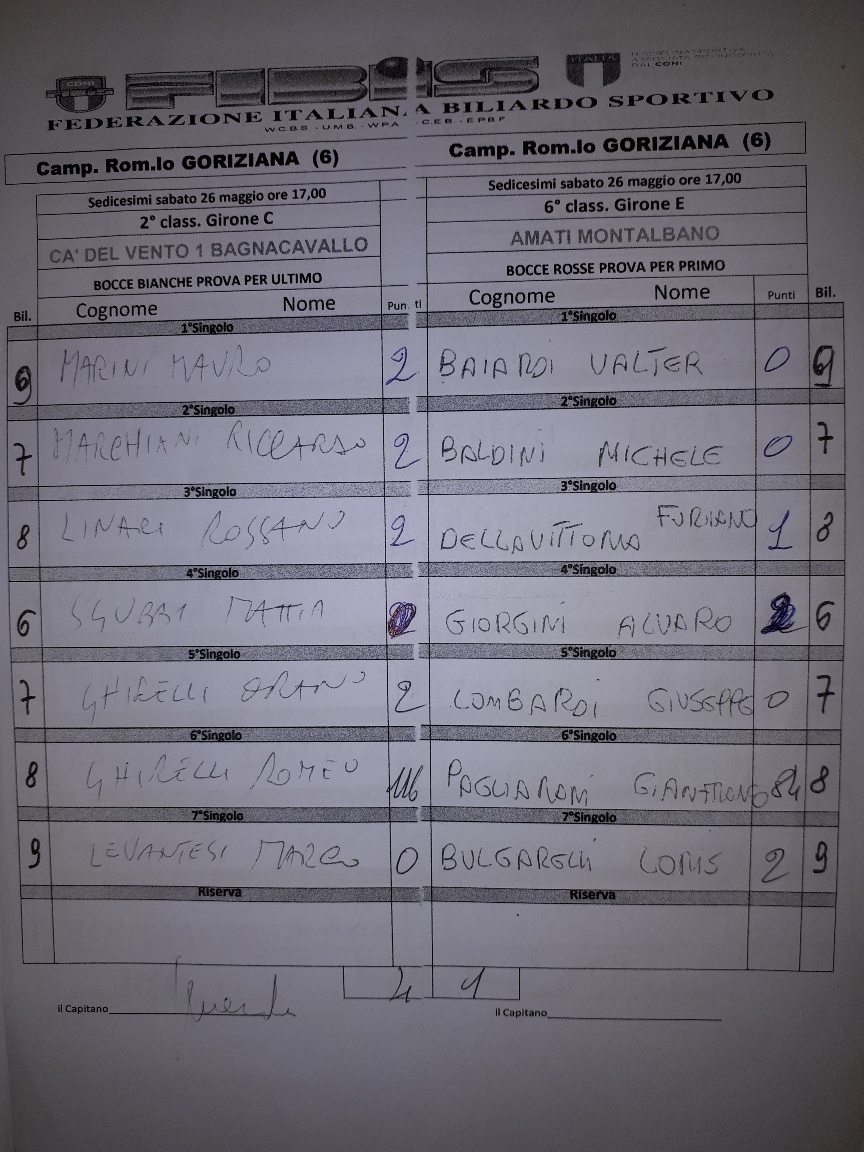 FIBiS
ITALIA
DISCIPLINA SPORTIVA
ASSOCIATA RICONOSCIUTA
DAL CONI
FEDERAZIONE ITALIANA BILIARDO SPORTIVO
WCBS - UMB - WPA - CEB - EPBF
Camp. Rom.lo GORIZIANA (6) Camp. Rom.lo GORIZIANA (6)
Sedicesimi sabato 26 maggio ore 17,00 Sedicesimi sabato 26 maggio ore 17,00
2° class. Girone C 6° class. Girone E
CA' DEL VENTO 1 BAGNACAVALLO AMATI MONTALBANO
BOCCE BIANCHE PROVA PER ULTIMO BOCCE ROSSE PROVA PER PRIMO
Bil. Cognome Nome Punti Cognome Nome Punti Bil.
1°Singolo 1°Singolo
9 MARINI MAURO 2 BAIARDI VALTER 0 9
2°Singolo 2°Singolo
7 MARCHIANI RICCARDO 2 BALDINI MICHELE 0 7
3°Singolo 3°Singolo
8 LINARI ROSSANO 2 DELLAVITTORIA FURIANO 1 8
4°Singolo 4°Singolo
6 SGUBBI MATTIA GIORGINI ALVARO 2 6
5°Singolo 5°Singolo
7 GHIRELLI ORANO 2 LOMBARDI GIUSEPPE 0 7
6°Singolo 6°Singolo
8 GHIRELLI ROMEO 116 PAGLIARANI GIANFRANCO 84 8
7°Singolo 7°Singolo
9 LEVANTESI MARCO 0 BULGARELLI LORIS 2 9
Riserva Riserva
4 1
il Capitano il Capitano